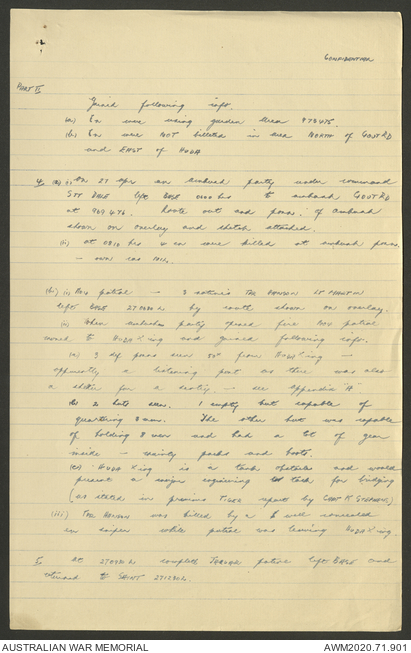 CONFIDENTIAL
PART II
Gained following info.
(a) En were using garden area 978475.
(b) En were NOT billeted in area NORTH of GOVT RD
and EAST of HUDA
4. (a) (i) On 27 Apr an ambush party under command
SGT DALE left BASE hrs to ambush GOVT RD
at 969476. Route out and posns of ambush
shown on overlay and sketch attached.
(ii) at 0810 hrs 4 en were killed at ambush posn.
- own cas NIL.
(b) (i) Recce patrol - 3 natives TPR LT
left BASE by route shown on overlay.
(ii) When ambush party opened fire patrol
moved to HUDA Xing and gained following info.
(a) 3 def posns seen from HUDA Xing -
apparently a listening post as there was also
a shelter for a sentry - see appendix 'A'
(b) 2 huts seen. 1 empty but capable of
quartering 8 men. The other hut was capable
of holding 8 men and had a lot of gear
inside - mainly packs and boots.
(c) HUDA Xing is a tank obstacle and would
present a major engineering task for bridging
(as stated in previous TIGER report by CAPT K. STEPHENS)
(iii) TPR was killed by a well concealed
en sniper while patrol was leaving HUDA Xing.
5. at complete patrol left BASE and
returned to SAINT
AUSTRALIAN WAR MEMORIAL
AWM2020.71.901